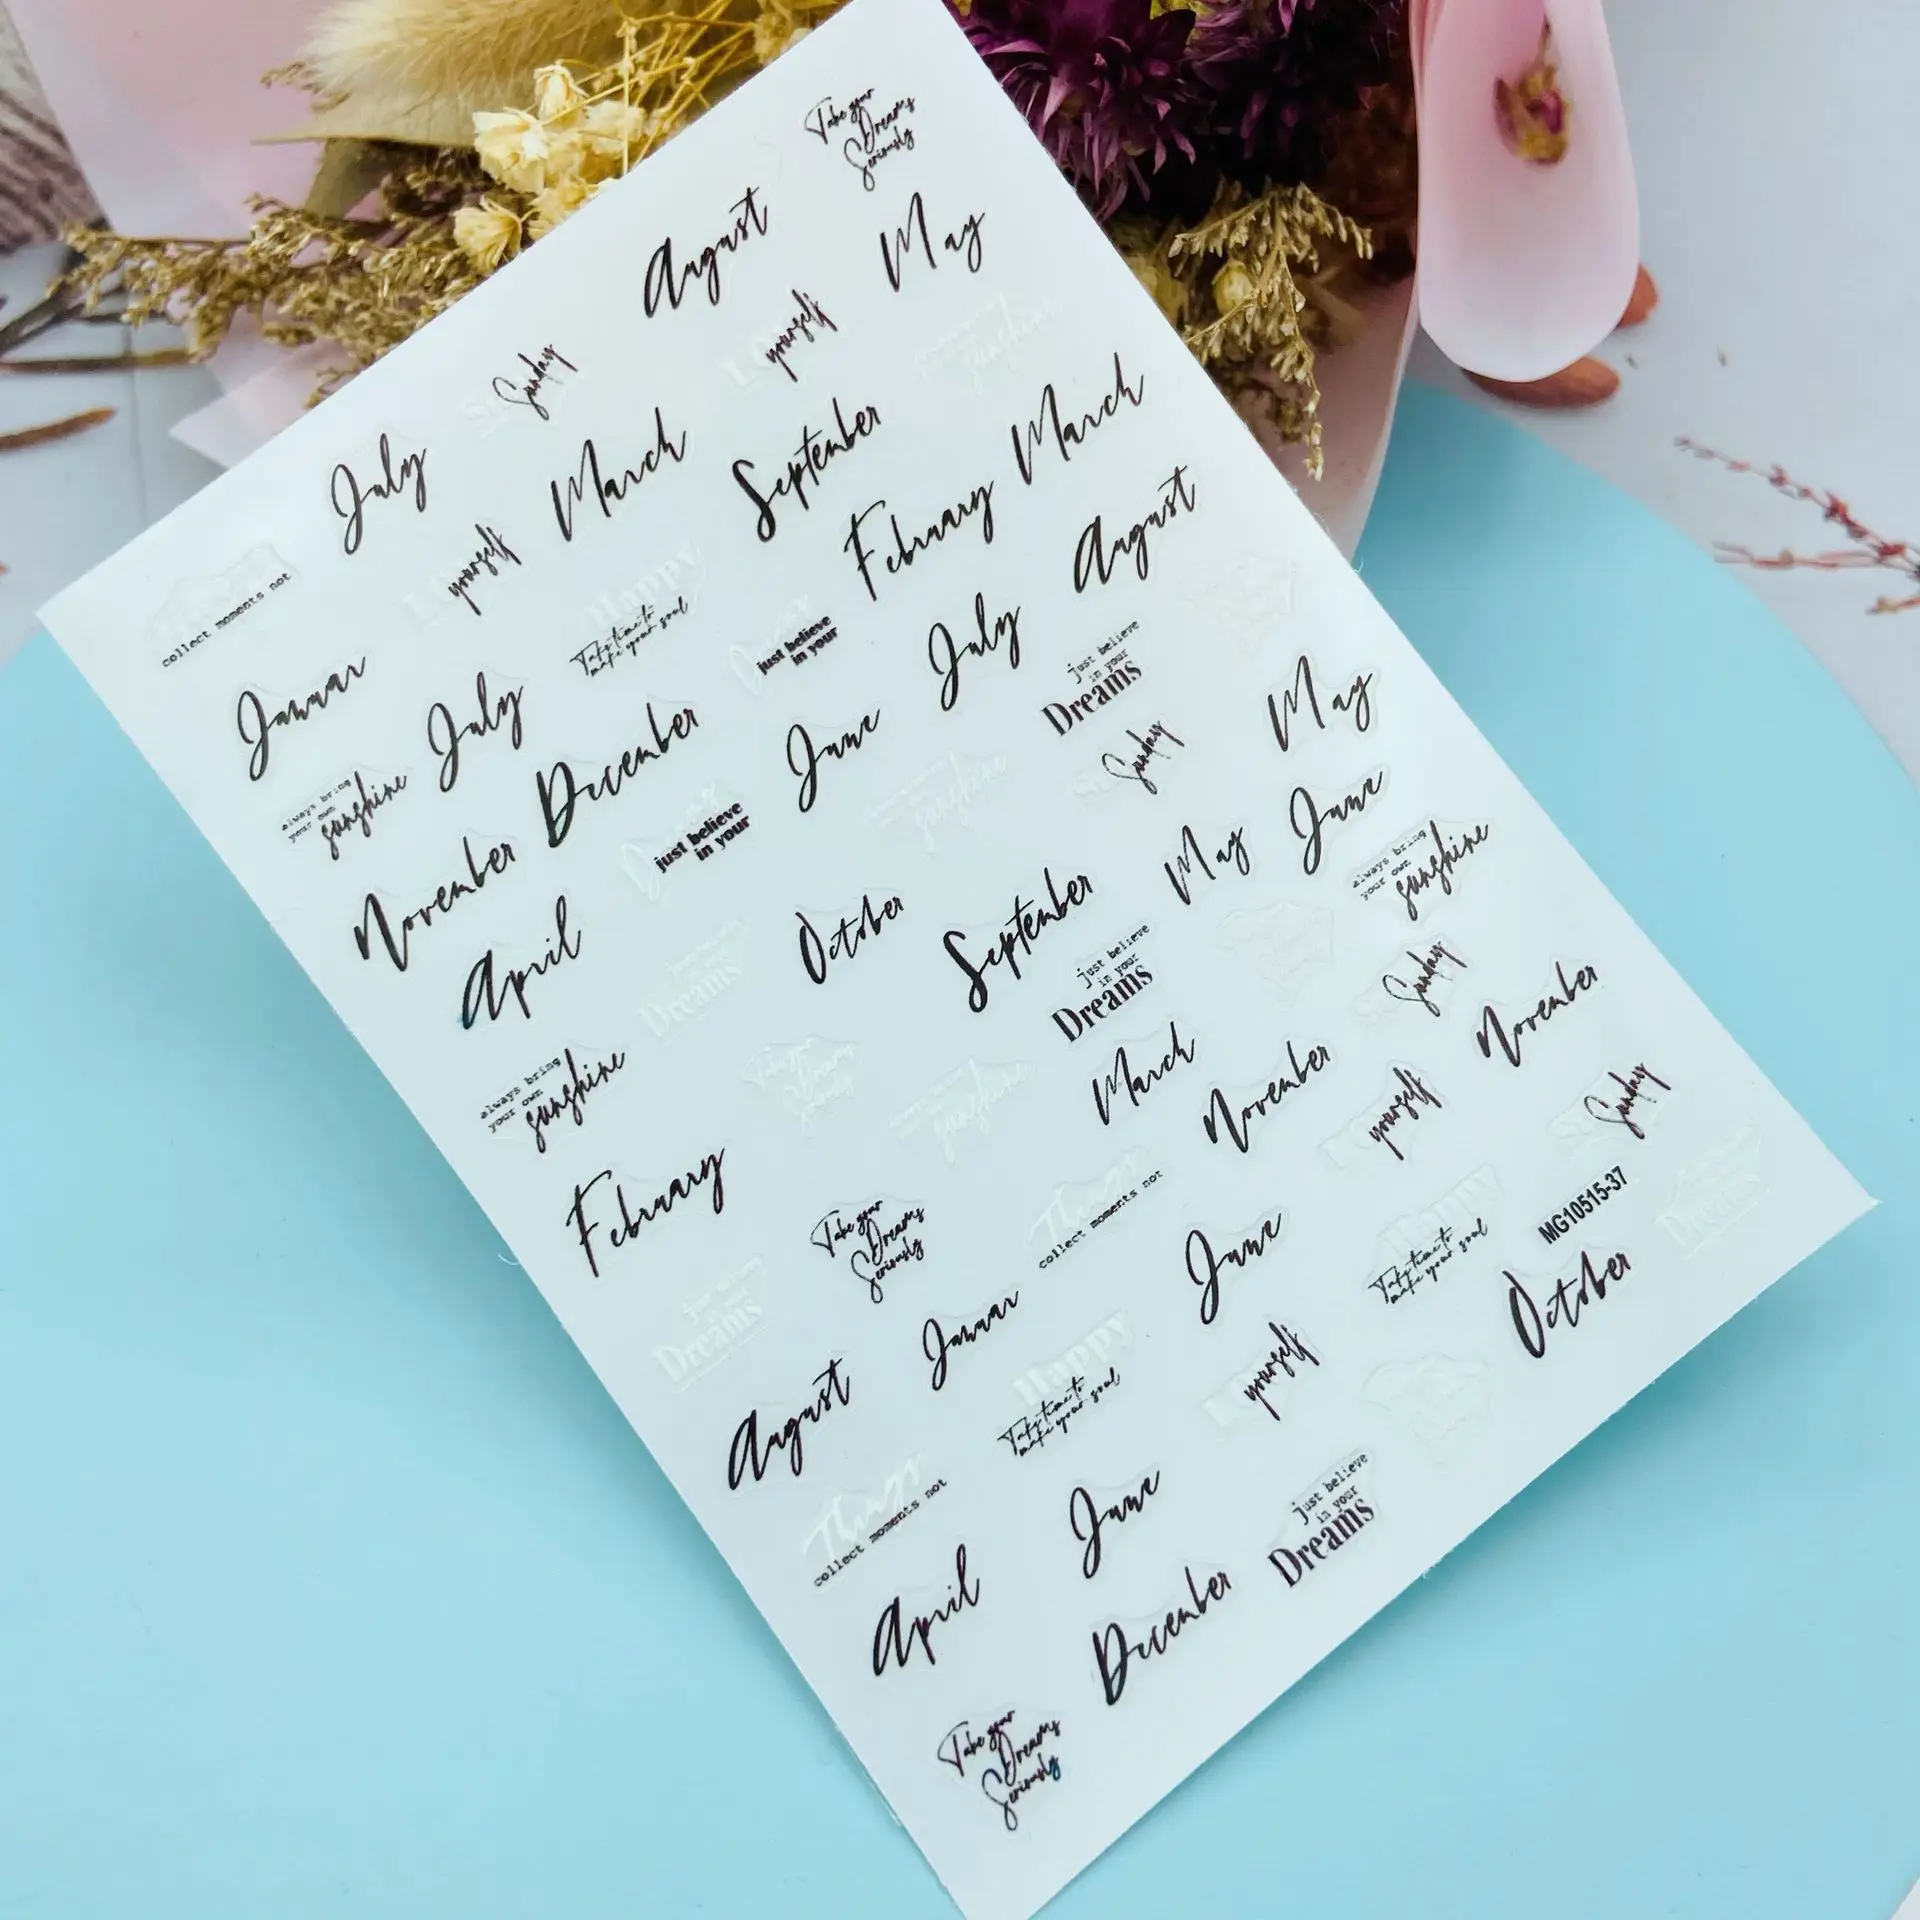 Take your
Dreams
Seriously
August
May
Sunday
yourself
sunshine
July
March
September
March
collect moments not
yourself
Happy
Take time to
make your soul
February
August
just believe
in your
Januar
July
December
July
just believe
in your
Dreams
May
always bring
your own
sunshine
just believe
in your
June
sunshine
Sunday
June
November
April
October
September
May
always bring
your own
sunshine
Dreams
just believe
in your
Dreams
Sunday
November
always bring
your own
sunshine
Take your
Dreams
Seriously
sunshine
March
November
yourself
Sunday
February
Take your
Dreams
Seriously
Things
collect moments not
June
Happy
Take time to
make your soul
MG10515-37
Dreams
October
just believe
in your
Dreams
Januar
Happy
Take time to
make your soul
yourself
August
Things
collect moments not
June
just believe
in your
Dreams
April
December
Take your
Dreams
Seriously